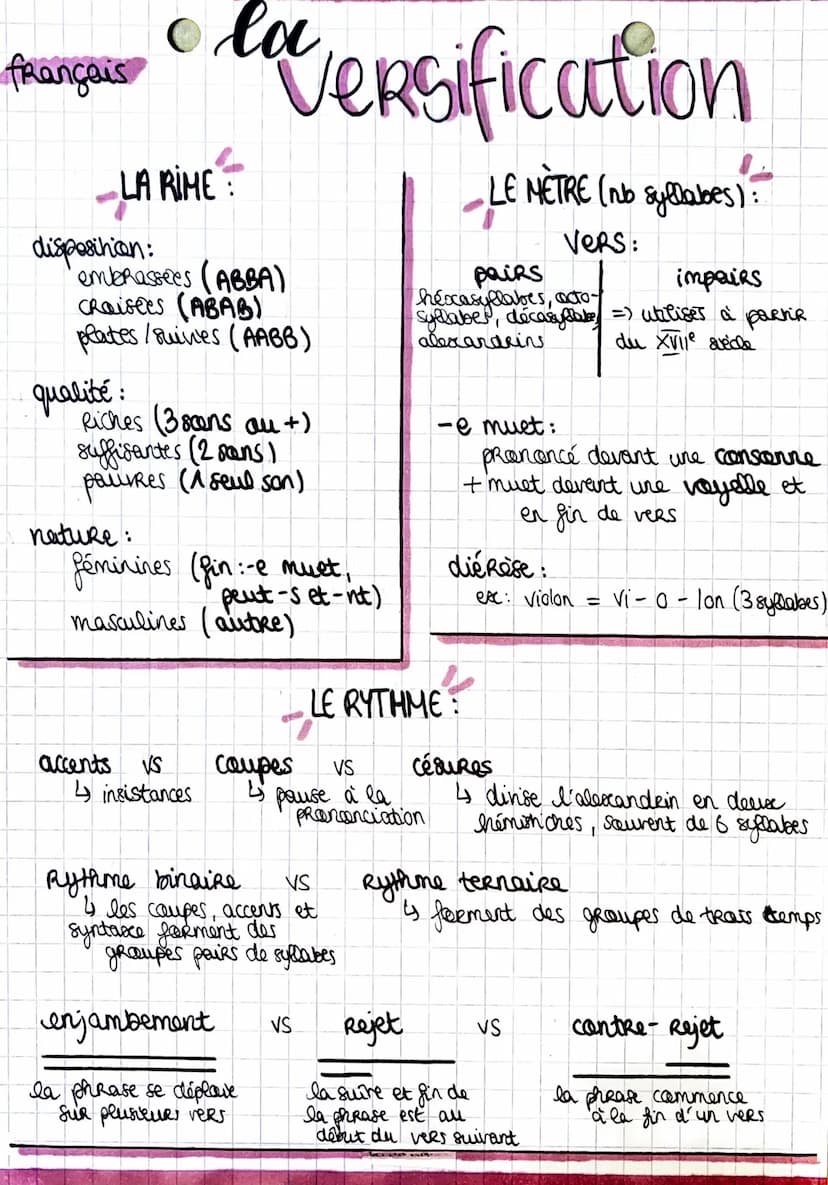 français
la
versification
LA RIME :
disposition:
embrassées (ABBA)
croisées (ABAB)
plates/suivies (AABB)
qualité :
riches (3 sons au +)
suffisantes (2 sons)
pauvres (1 seul son)
nature :
féminines (fin :-e muet,
peut -s et -nt)
masculines (autre)
LE MÈTRE (nb syllabes) :
vers :
pairs
héxasyllabes, octo-
syllabes, décasyllabes
alexandrins
impairs
=> utilisés à partir
du XVIIe siècle
-e muet :
prononcé devant une consonne
+ muet devant une voyelle et
en fin de vers
diérèse :
ex : violon = vi - o - lon (3 syllabes)
LE RYTHME :
accents vs coupes vs césures
↳ insistances
↳ pause à la
prononciation
↳ divise l'alexandrin en deux
hémistiches, souvent de 6 syllabes
Rythme binaire vs Rythme ternaire
↳ les coupes, accents et
syntaxe forment des
groupes pairs de syllabes
↳ forment des groupes de trois temps
enjambement vs Rejet vs contre-Rejet
la phrase se déploie
sur plusieurs vers
la suite et fin de
la phrase est au
début du vers suivant
la phrase commence
à la fin d'un vers